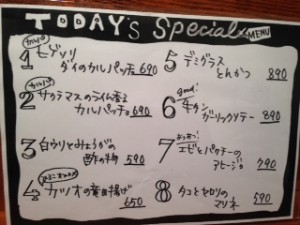 TODAY's Special MENU
1 ピリリ
ダイのカルパッチョ 690
2 サクラマスのライム香る
カルパッチョ 690
3 白ウリとみょうがの
酢の物 590
4 カツオの竜田揚げ
650
5 デミグラス
とんかつ 890
6 good!
牛タン
ガーリックソテー 890
7 エビとパクチーの
アヒージョ 790
8 タコとセロリの
マリネ 590